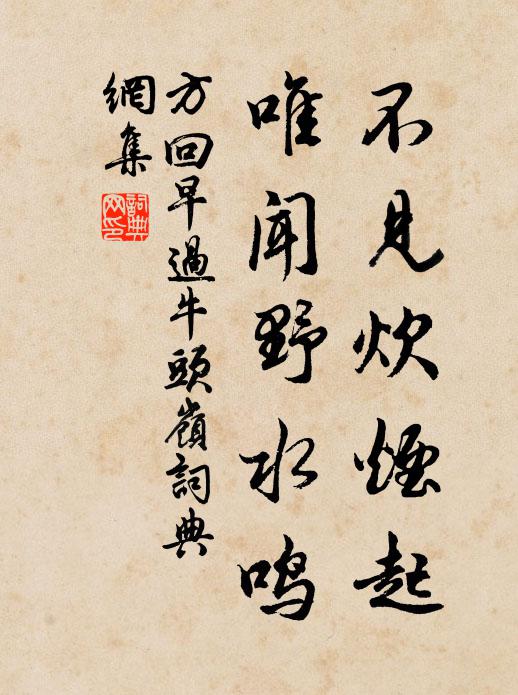 不见炊烟起
唯闻野水鸣
方回早過牛頭嶺詞典
網集
詞典
网印